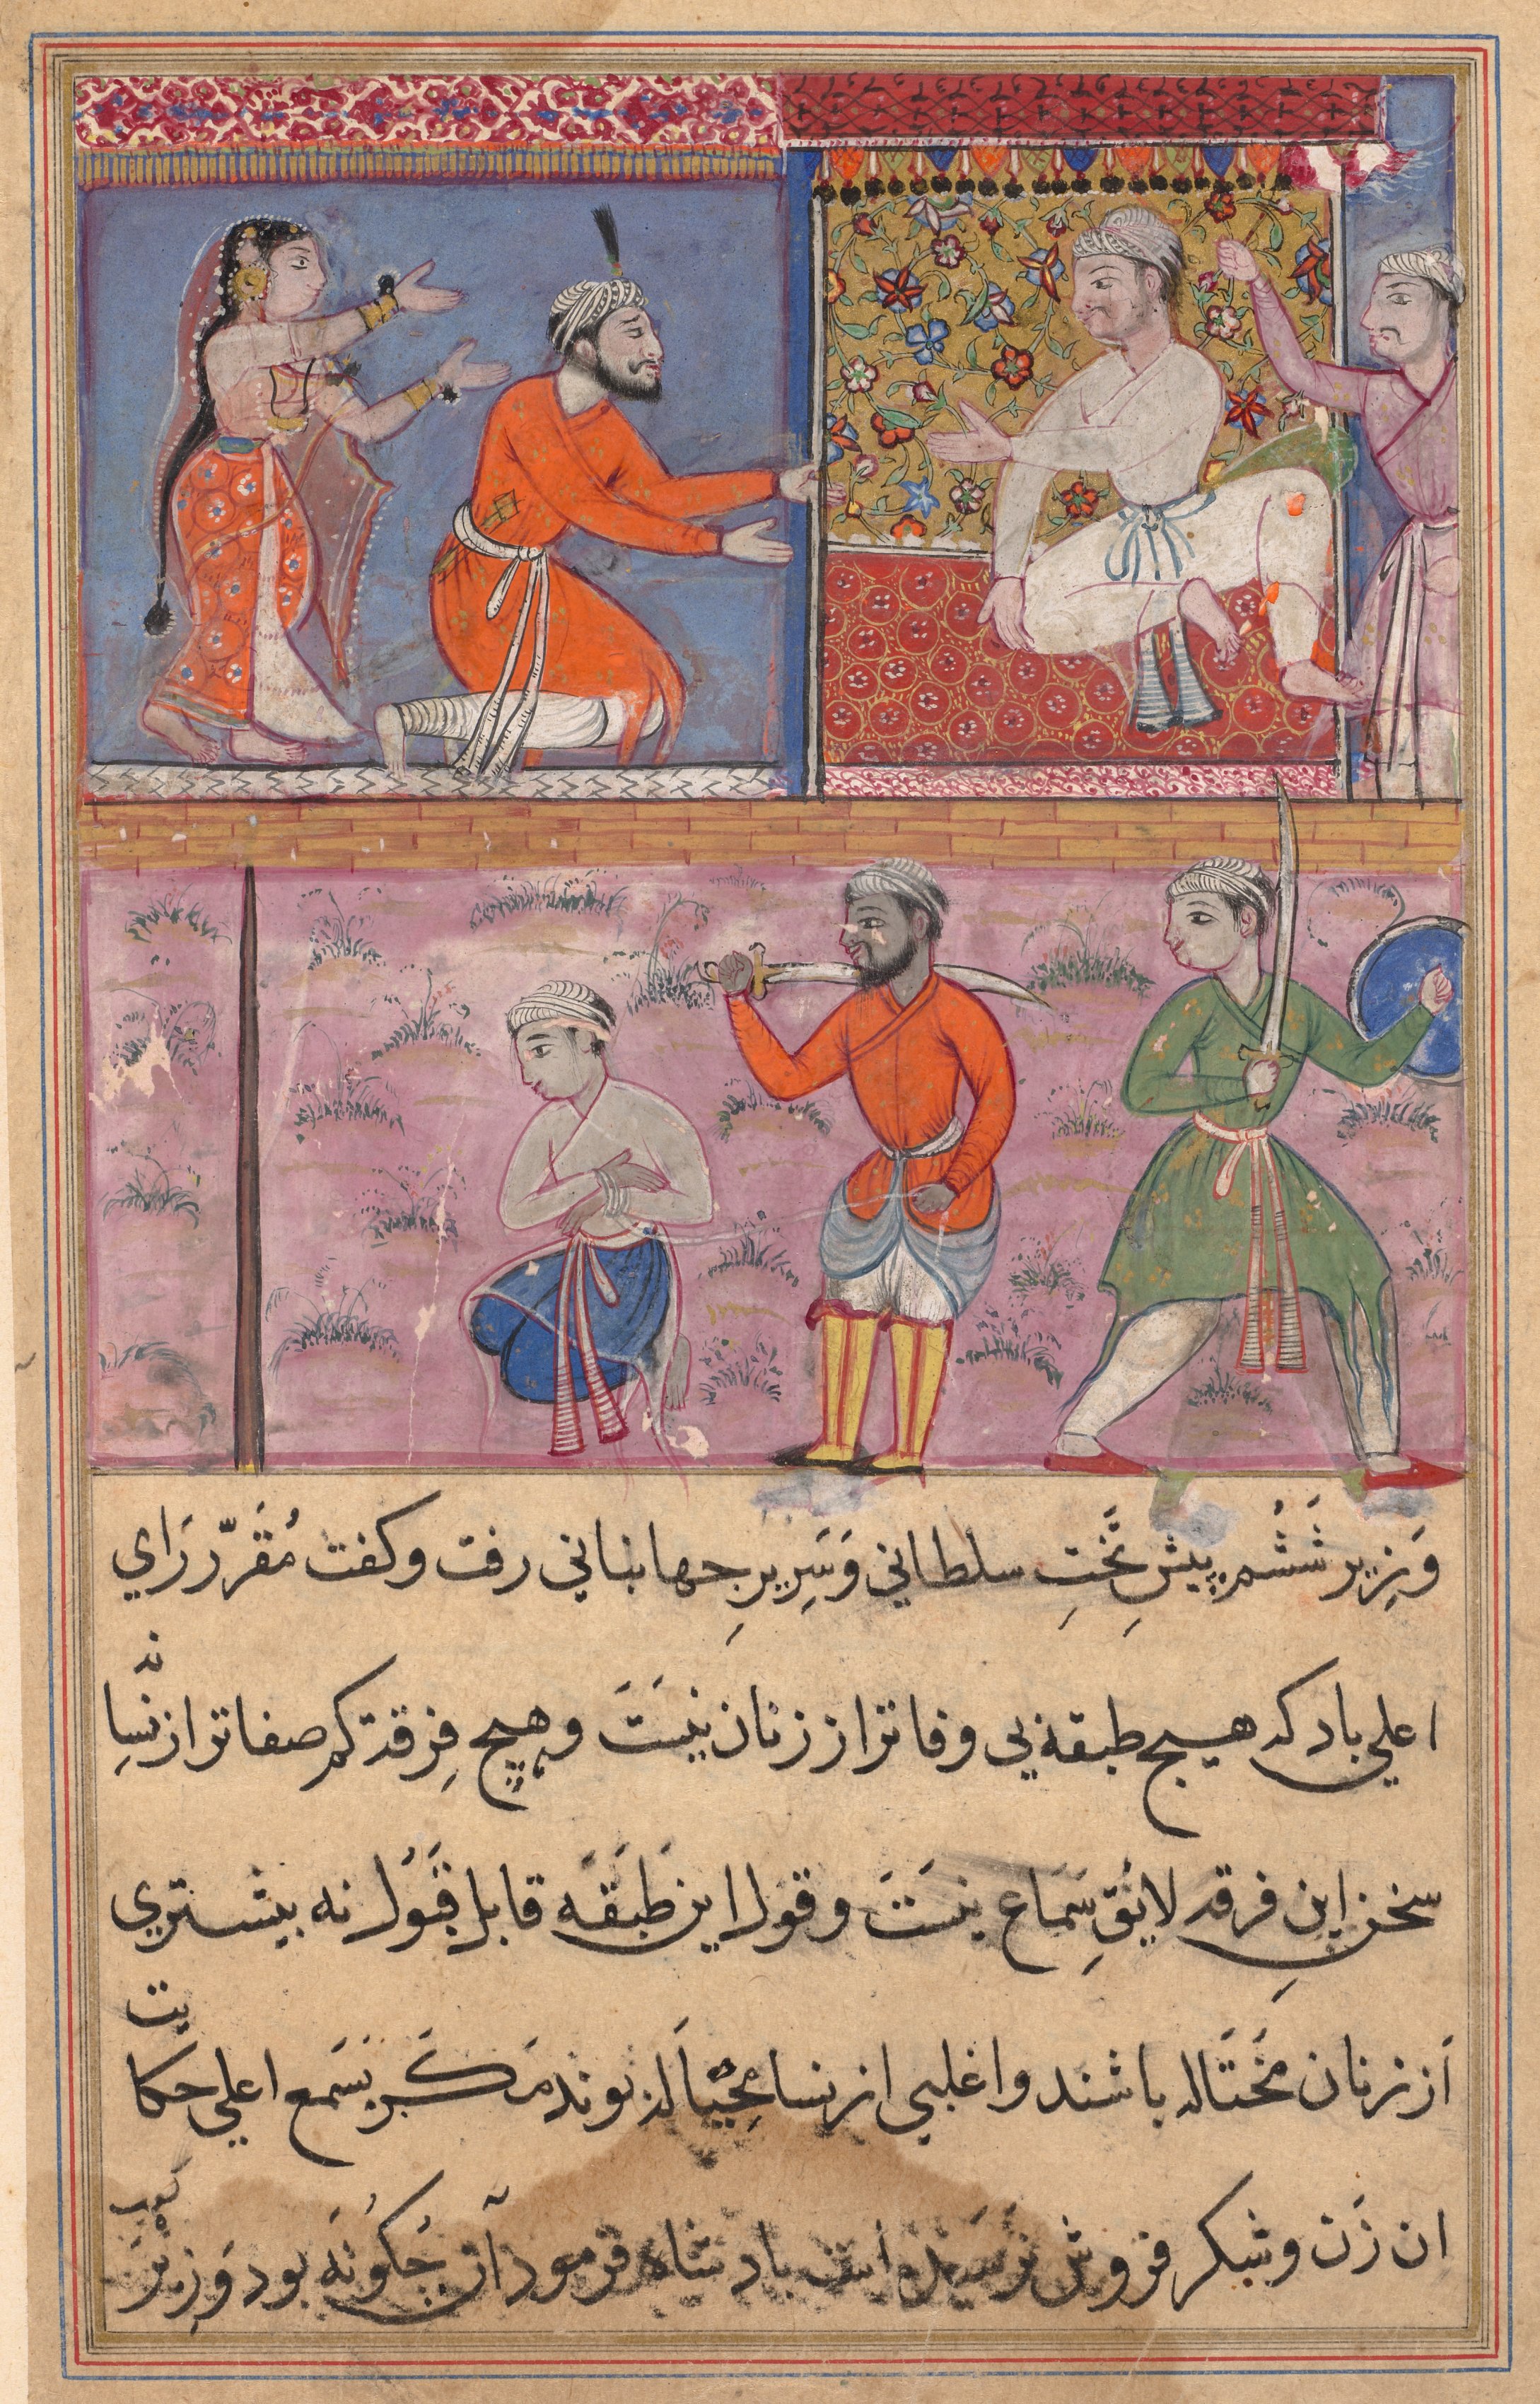 وَزِیر شَشُم پیشِ تَختِ سلطاني وَسَرِیرِ جهانباني رفت وکفت مُقَرّر رَاي
اعلي باد که هیچ طبقهٔ بي وفاتر از زنان نیستَ وهیچ فِرقهٔ کم صفاتر از نِسا نه
سخن این فرقه لائقِ سَمَاعِ نیستَ وقول این طَبَقَه قابل قَبُول نه بیشتري
اَز زنان مُحتَاله باشند واغلبي از نسا مُحیَاله بوند مَکَر بسَمع اعلي حکایت
ان زَن وشکر فروش نرَسیده است بادشاه فرمود آن چَکُونَه بود وَزِیر کفت